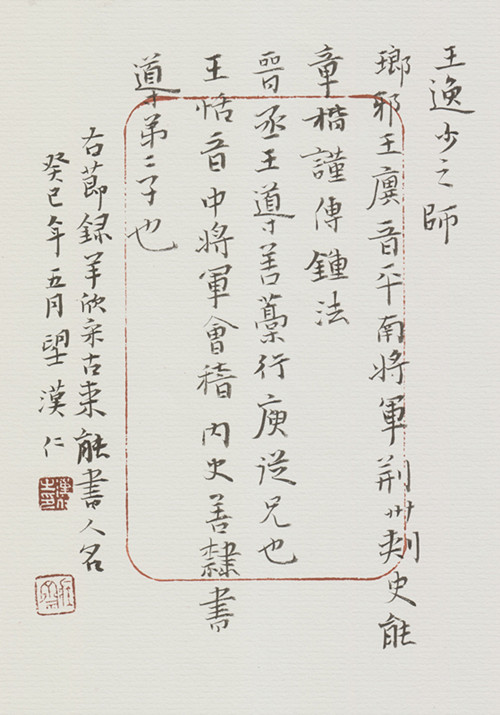 王逸少之師
瑯邪王廙晉平南將軍荆州刺史能
章楷謹傳鍾法
晉丞王導善藁行廙從兄也
王恬晉中將軍會稽内史善隸書
導弟二子也
右莭録羊欣采古來能書人名
癸巳年五月望漢仁